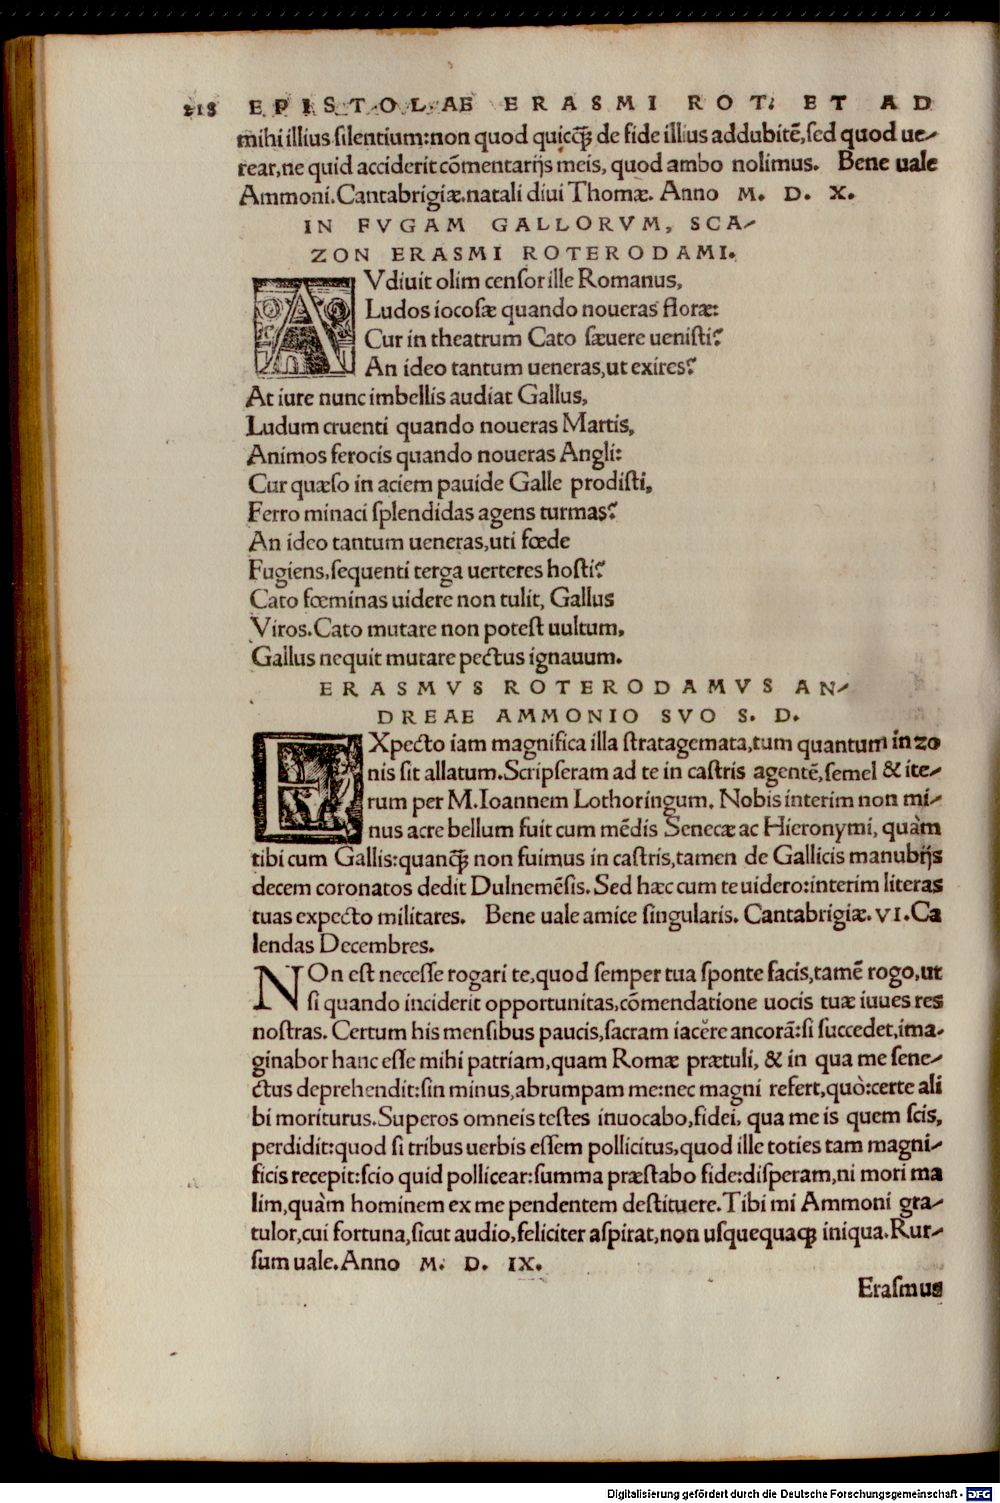 218 EPISTOLAE ERASMI ROT. ET AD
mihi illius silentium:non quod quicq̃ꝫ de fide illius addubitẽ,sed quod ue-
rear,ne quid acciderit cõmentarijs meis, quod ambo nolimus. Bene uale
Ammoni.Cantabrigiæ.natali diui Thomæ. Anno M. D. X.
IN FVGAM GALLORVM, SCA-
ZON ERASMI ROTERODAMI.
AVdiuit olim censor ille Romanus,
Ludos iocosæ quando noueras floræ:
Cur in theatrum Cato sæuere uenisti?
An ideo tantum ueneras,ut exires?
At iure nunc imbellis audiat Gallus,
Ludum cruenti quando noueras Martis,
Animos ferocis quando noueras Angli:
Cur quæso in aciem pauide Galle prodisti,
Ferro minaci splendidas agens turmas?
An ideo tantum ueneras,uti fœde
Fugiens,sequenti terga uerteres hosti?
Cato fœminas uidere non tulit, Gallus
Viros.Cato mutare non potest uultum,
Gallus nequit mutare pectus ignauum.
ERASMVS ROTERODAMVS AN-
DREAE AMMONIO SVO S. D.
EXpecto iam magnifica illa stratagemata,tum quantum in zo
nis sit allatum.Scripseram ad te in castris agentẽ,semel & ite-
rum per M.Ioannem Lothoringum. Nobis interim non mi-
nus acre bellum fuit cum mẽdis Senecæ ac Hieronymi, quàm
tibi cum Gallis:quanq̃ꝫ non fuimus in castris,tamen de Gallicis manubijs
decem coronatos dedit Dulnemẽsis. Sed hæc cum te uidero:interim literas
tuas expecto militares. Bene uale amice singularis. Cantabrigiæ.VI.Ca
lendas Decembres.
NOn est necesse rogari te,quod semper tua sponte facis,tamẽ rogo,ut
si quando inciderit opportunitas,cõmendatione uocis tuæ iuues res
nostras. Certum his mensibus paucis,sacram iacěre ancorã:si succedet,ima-
ginabor hanc esse mihi patriam,quam Romæ prætuli, & in qua me sene-
ctus deprehendit:sin minus,abrumpam me:nec magni refert,quò:certe ali
bi moriturus.Superos omneis testes inuocabo,fidei, qua me is quem scis,
perdidit:quod si tribus uerbis essem pollicitus,quod ille toties tam magni-
ficis recepit:scio quid pollicear:summa præstabo fide:disperam,ni mori ma
lim,quàm hominem ex me pendentem destituere.Tibi mi Ammoni gra-
tulor,cui fortuna,sicut audio,feliciter aspirat,non usquequaqꝫ iniqua.Rur-
sum uale.Anno M. D. IX.
Erasmus
Digitalisierung gefördert durch die Deutsche Forschungsgemeinschaft - DFG